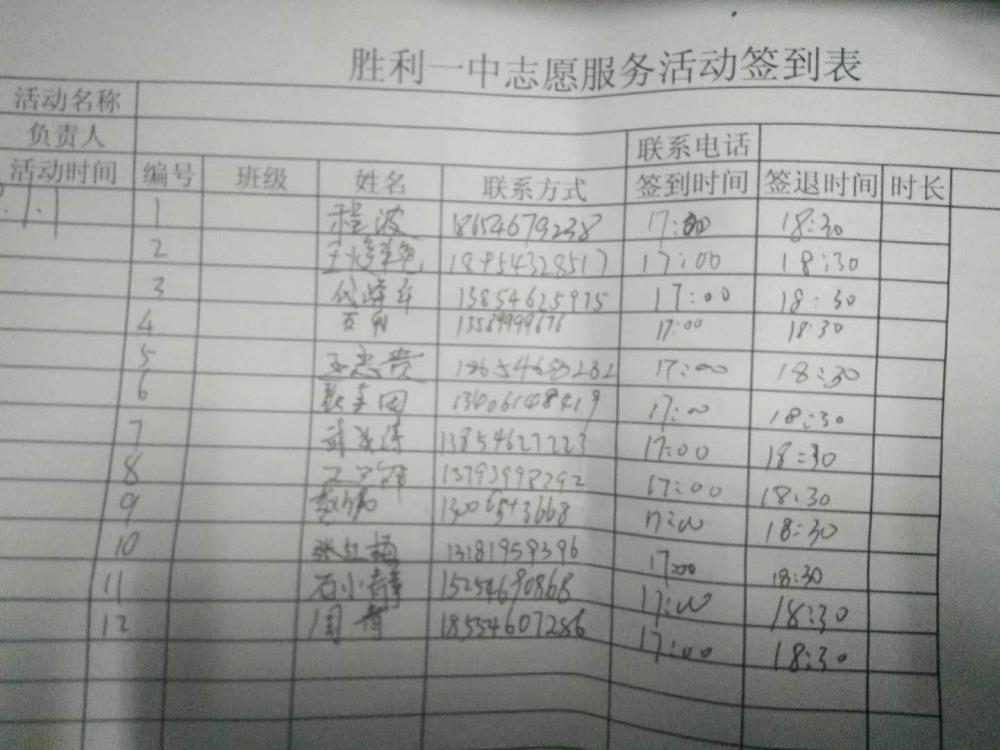 胜利一中志愿服务活动签到表
活动名称
负责人 联系电话
活动时间 编号 班级 姓名 联系方式 签到时间 签退时间 时长
1 程波 18654679238 17:00 18:30
2 18954328517 17:00 18:30
3 13854625975 17:00 18:30
4 13589999676 17:00 18:30
5 17:00 18:30
6 13406148419 17:00 18:30
7 13854627223 17:00 18:30
8 13793998292 17:00 18:30
9 17:00 18:30
10 张红梅 13181959396 17:00 18:30
11 石小静 15254690868 17:00 18:30
12 18554607286 17:00 18:30